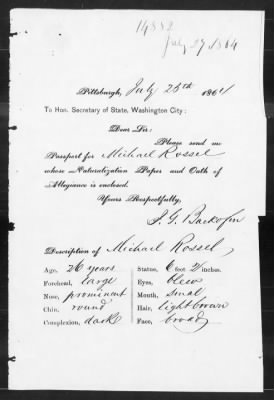 14552
July 27, 1864
Pittsburgh, July 25th 1864
To Hon. Secretary of State, Washington City:
Dear Sir:
Please send me
Passport for Michael Rossel
whose Naturalization Paper and Oath of
Allegiance is enclosed.
Yours Respectfully,
J. G. Backofen
Description of Michael Rossel
Age, 26 years Stature, 6 feet 2 inches.
Forehead, large Eyes, blew
Nose, prominent Mouth, smal
Chin, round Hair, light brown
Complexion, dark Face, broad